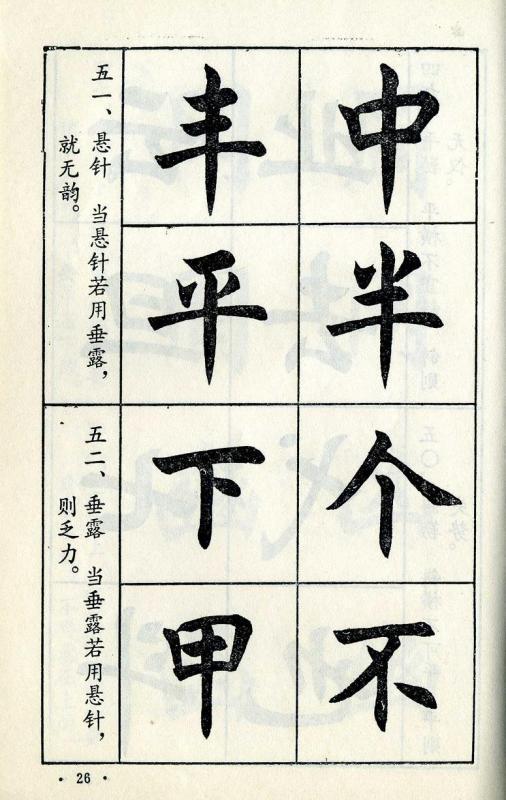 五一、悬针 当悬针若用垂露，
就无韵。
中
丰
半
平
五二、垂露 当垂露若用悬针，
则乏力。
个
下
不
甲
· 26 ·